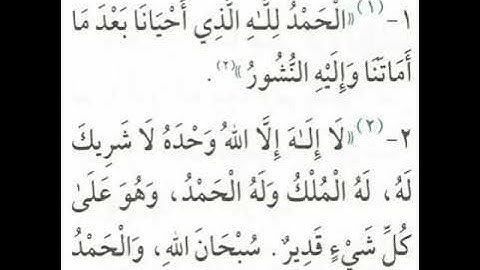 ١-(١)«الْحَمْدُ لِلَّهِ الَّذِي أَحْيَانَا بَعْدَ مَا
أَمَاتَنَا وَإِلَيْهِ النُّشُورُ»(٢).
٢-(٣)«لَا إِلَهَ إِلَّا اللهُ وَحْدَهُ لَا شَرِيكَ
لَهُ، لَهُ الْمُلْكُ وَلَهُ الْحَمْدُ، وَهُوَ عَلَىٰ
كُلِّ شَيْءٍ قَدِيرٌ. سُبْحَانَ اللهِ، وَالْحَمْدُ